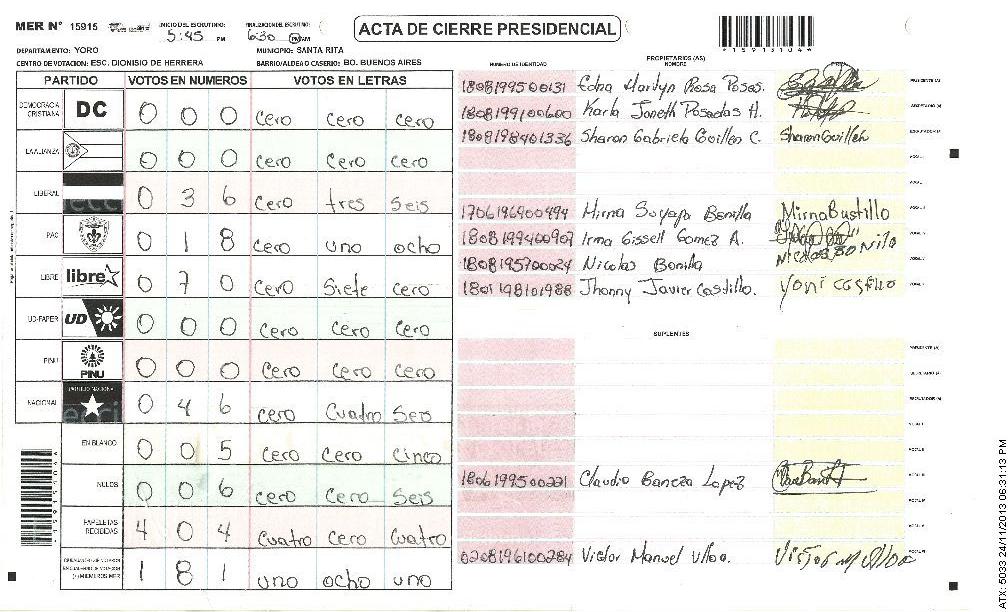 MER N° 15915 INICIO DEL ESCRUTINIO: 5:45 PM FINALIZACION DEL ESCRUTINIO: 6:30 PM AM
ACTA DE CIERRE PRESIDENCIAL
159151044
DEPARTAMENTO: YORO MUNICIPIO: SANTA RITA
CENTRO DE VOTACION: ESC. DIONISIO DE HERRERA BARRIO/ALDEA O CASERIO: BO. BUENOS AIRES
PARTIDO VOTOS EN NUMEROS VOTOS EN LETRAS
DEMOCRACIA CRISTIANA DC 0 0 0 Cero Cero Cero
LA ALIANZA 0 0 0 Cero Cero Cero
LIBERAL 0 3 6 Cero tres Seis
PAC 0 1 8 Cero uno ocho
LIBRE libre 0 7 0 Cero Siete Cero
UD-FAPER UD 0 0 0 Cero Cero Cero
PINU PINU 0 0 0 Cero Cero Cero
NACIONAL PARTIDO NACIONAL 0 4 6 Cero Cuatro Seis
EN BLANCO 0 0 5 Cero Cero Cinco
NULOS 0 0 6 Cero Cero Seis
PAPELETAS RECIBIDAS 4 0 4 Cuatro Cero Cuatro
(+) MIEMBROS MER 1 8 1 uno ocho uno
NUMERO DE IDENTIDAD PROPIETARIOS (AS) NOMBRE
1808199500131 Edna Marilyn Rosa Posas. PRESIDENTE (A)
1808199100600 Karla Janeth Posadas H. SECRETARIO (A)
1808198401336 Sharon Gabriela Guillen C. Sharon Guillen ESCRUTADOR (A)
1706196900494 Mirna Suyapa Bonilla Mirna Bustillo
1808199400907 Irma Gissell Gomez A.
1808195700024 Nicolas Bonilla Nicolas Bonilla
1801198101988 Jhonny Javier Castillo. Yoni Castillo
SUPLENTES
PRESIDENTE (A)
SECRETARIO (A)
ESCRUTADOR (A)
1806199500221 Claudio Baneza Lopez
0208196100284 Victor Manuel Ulloa. Victor M Ulloa
ATX: 5033 24/11/2013 06:31:13 PM